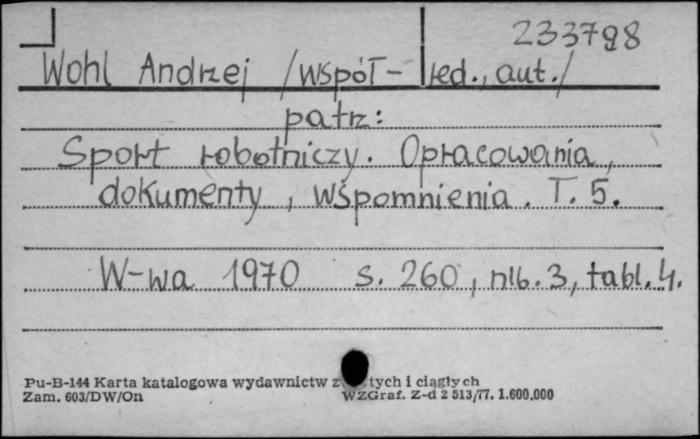 233798
Wohl Andrzej /współ-red., aut./
patrz:
Sport robotniczy. Opracowania,
dokumenty, wspomnienia. T. 5.
W-wa 1970 s. 260, nlb. 3, tabl. 4.
Pu-B-144 Karta katalogowa wydawnictw tych i ciągłych
Zam. 603/DW/On WZGraf. Z-d 2 513/77. 1.600.000